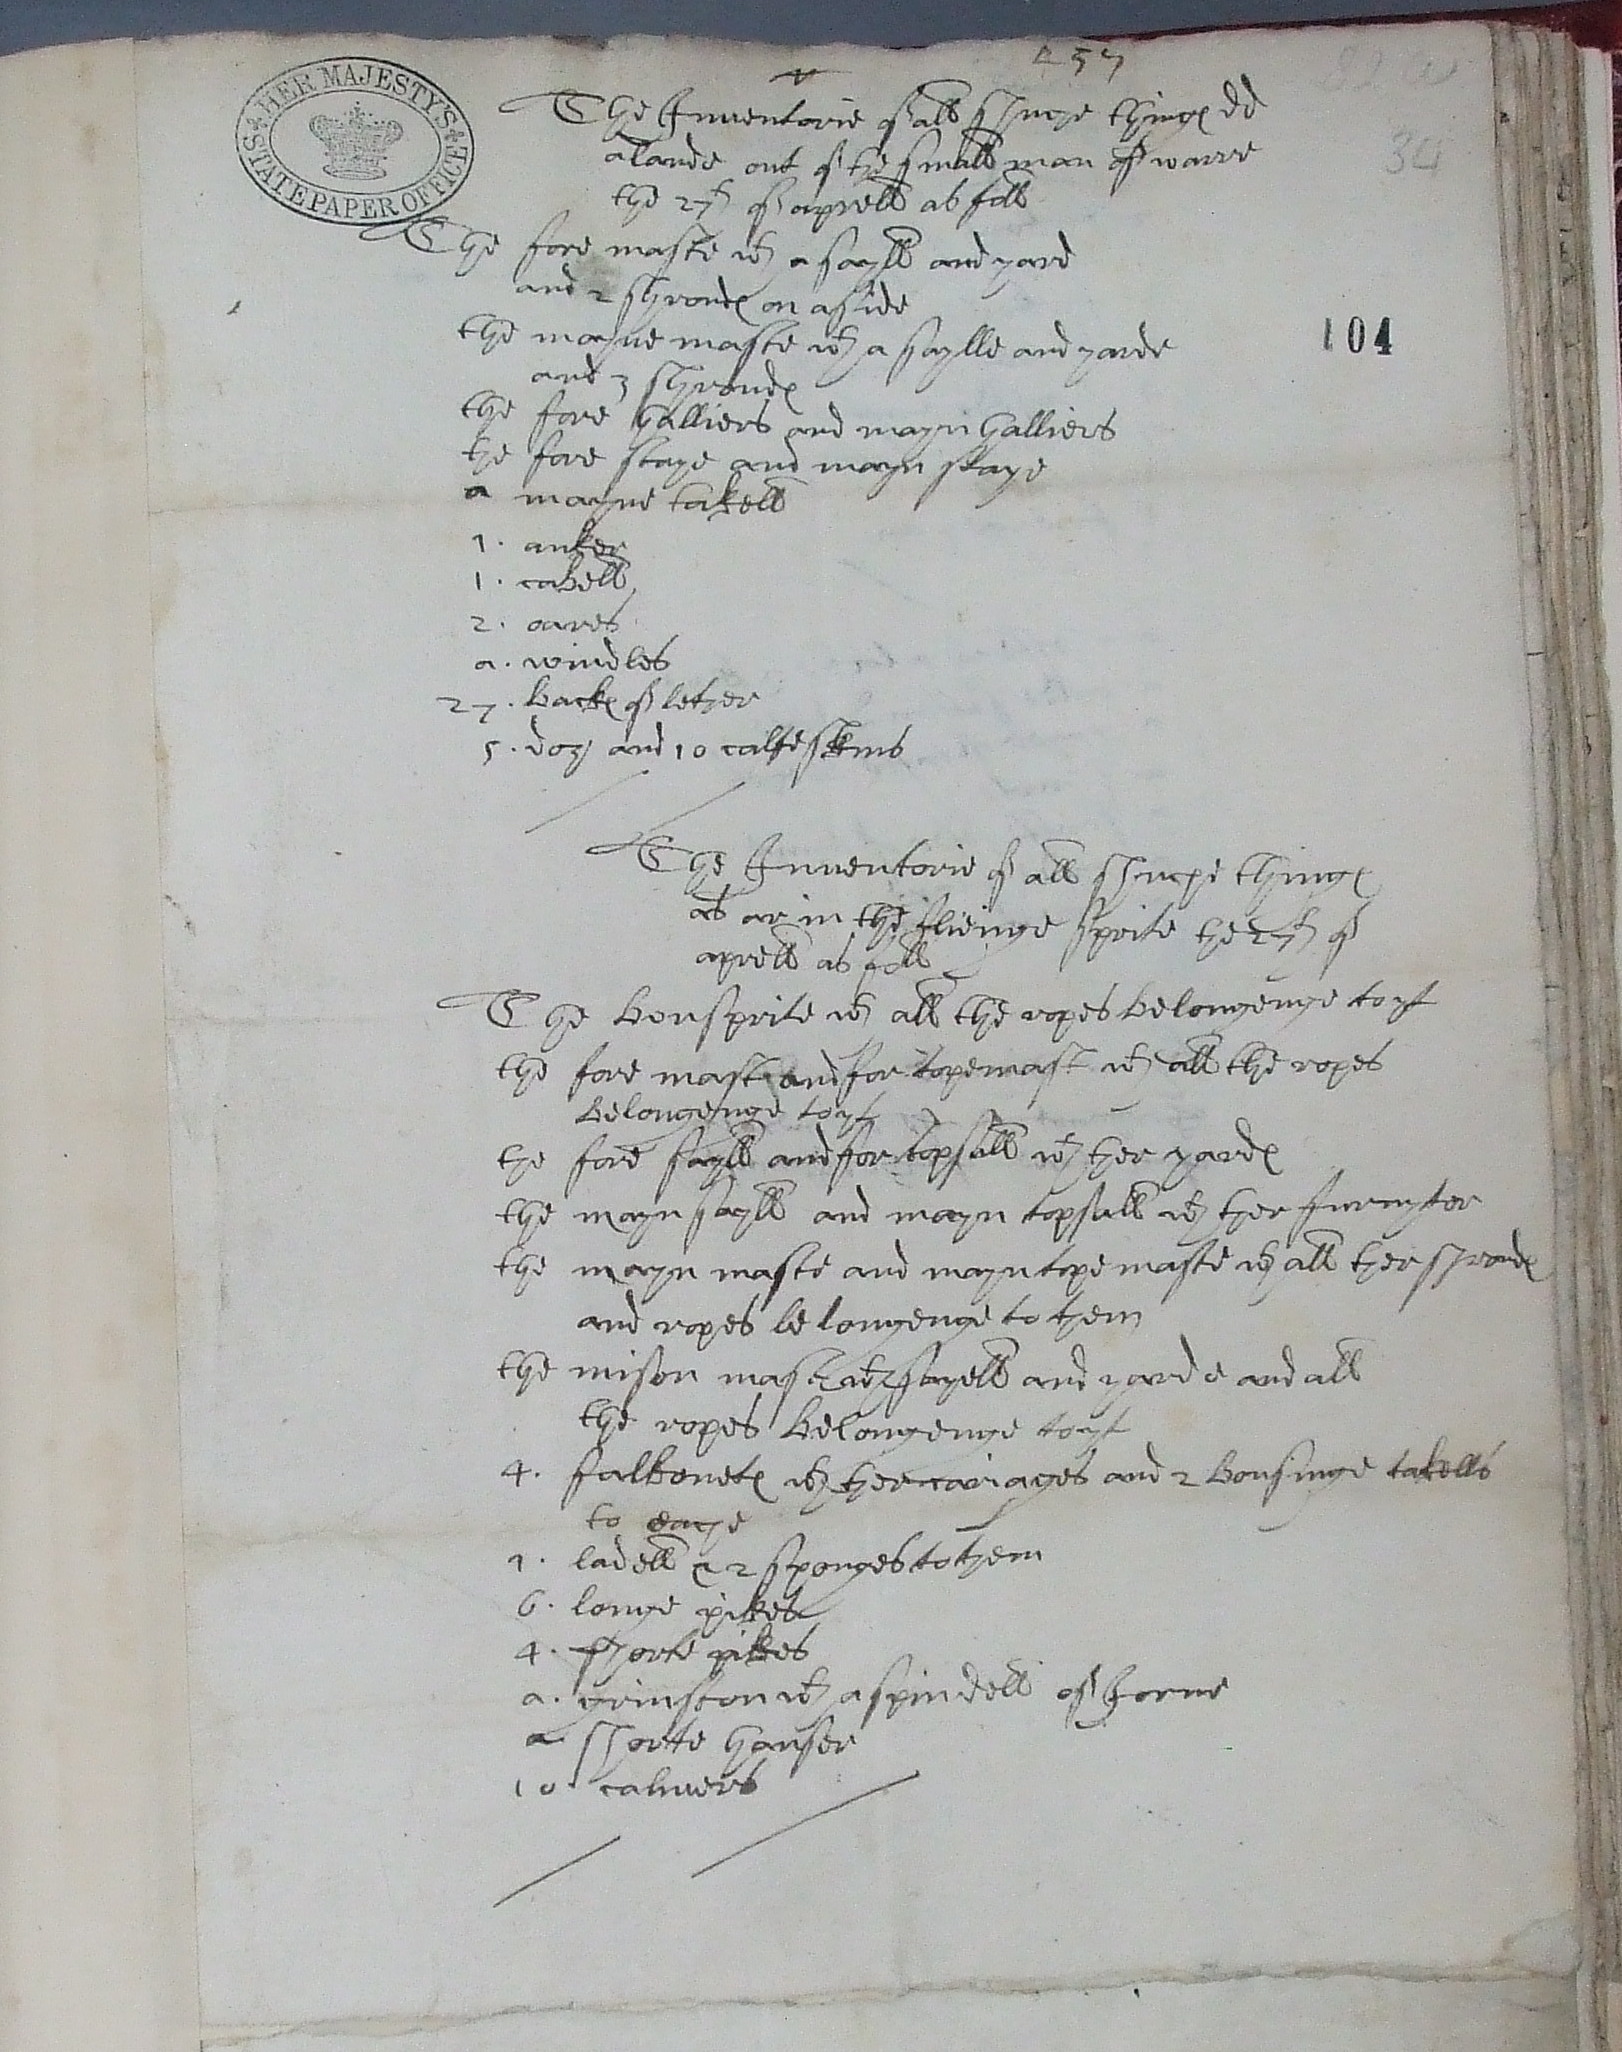 257
82
34
HER MAJESTY'S
STATE PAPER OFFICE
The Inventorie of all shuche thinges dd
a lande out of the small man of warre
the 27th of aprell as foll
The fore maste wth a sayll and yard
and 2 shroudes on a side
the mayne maste wth a saylle and yarde
104
and 3 shroudes
the fore halliers and mayn halliers
the fore staye and mayn staye
a mayne takell
1. anker
1. cabell
2. oares
a. windles
27. backes of lether
5. doz and 10 calfe skins
The Inventorie of all shuche thinges
as ar in the flienge sprite the 27th of
aprell as foll
The bousprite wth all the ropes belongenge to yt
the fore mast and for topemast wth all the ropes
belongenge to yt
the fore sayll and for topsall wth ther yardes
the mayn sayll and mayn topsall wth ther furnyter
the mayn maste and mayn tope maste wth all ther shroudes
and ropes belongenge to them
the mison mast wth sayell and yarde and all
the ropes belongenge to yt
4. falkenetes wth ther cariages and 2 bousinge takells
to eache
1. ladell & 2 sponges to them
6. longe pikes
4. shorte pikes
a. grinston wth a spindell of Iorne
a shorte hauser
10. calivers